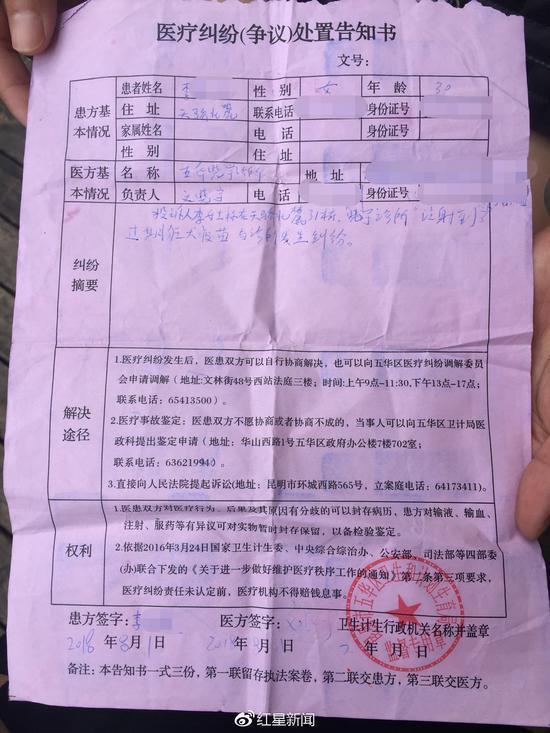 医疗纠纷(争议)处置告知书
文号：
患方基本情况
患者姓名 李 性 别 女 年 龄 30
住 址 联系电话 身份证号
家属姓名 电 话 身份证号
性 别 住 址
医方基本情况
名 称 五华 诊所 地 址
负责人 电 话
纠纷摘要
投诉人李 诊所 注射到
过期狂犬疫苗与诊所发生纠纷。
解决途径
1.医疗纠纷发生后，医患双方可以自行协商解决，也可以向五华区医疗纠纷调解委员
会申请调解（地址:文林街48号西站法庭三楼；时间:上午9点–11:30,下午13点–17点；
联系电话：65413500）。
2.医疗事故鉴定；医患双方不愿协商或者协商不成的，当事人可以向五华区卫计局医
政科提出鉴定申请（地址：华山西路1号五华区政府办公楼7楼702室；
联系电话：63621994）。
3.直接向人民法院提起诉讼(地址：昆明市环城西路565号，立案庭电话：64173411)。
权利
1.医患双方对医疗行为、后果及其原因有分歧的可以封存病历，患方对输液、输血、
注射、服药等有异议可对实物暂时封存保留，以备检验鉴定。
2.依据2016年3月24日国家卫生计生委、中央综合综治办、公安部、司法部等四部委
(办)联合下发的《关于进一步做好维护医疗秩序工作的通知》第二条第三项要求，
医疗纠纷责任未认定前，医疗机构不得赔钱息事。
患方签字：李 医方签字： 卫生计生行政机关名称并盖章
2018 年 8 月 1 日 2018 年 月 日 年 月 日
备注：本告知书一式三份，第一联留存执法案卷，第二联交患方，第三联交医方。
红星新闻